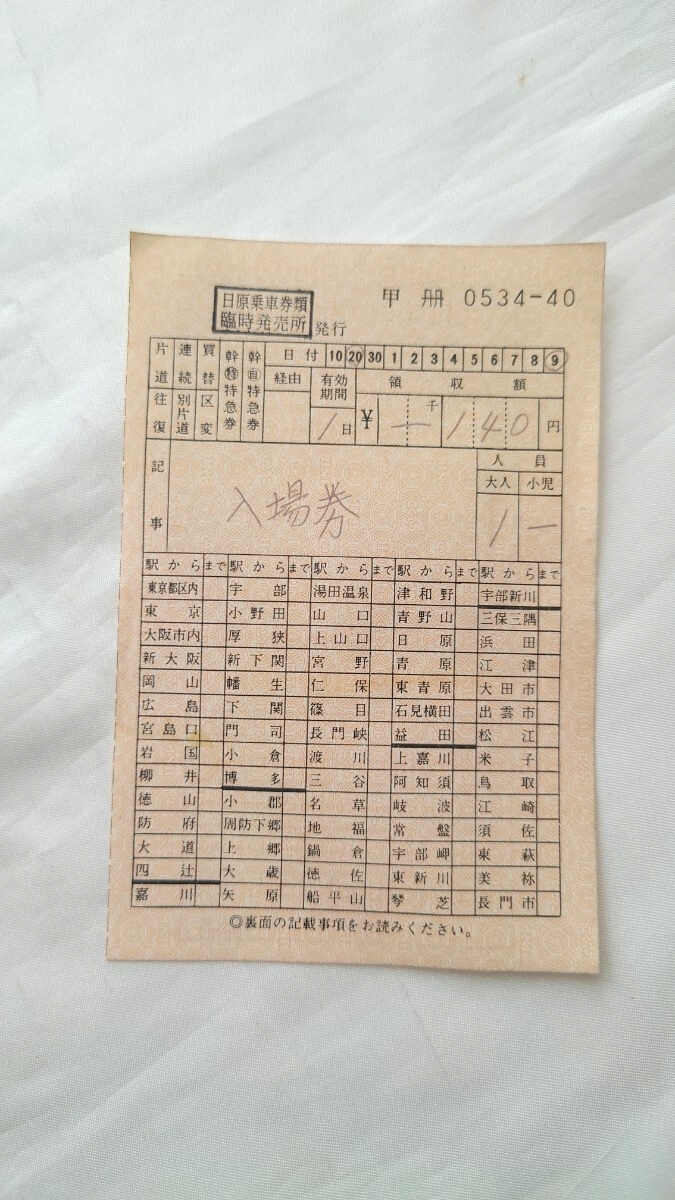 日原乗車券類
臨時発売所
発行
甲 册 0534-40
片道 連続 買替 幹特特急券 幹自特急券 日付 10 20 30 1 2 3 4 5 6 7 8 9
往復 別片道 区変 経由 有効期間 領収額
1日 ¥ 一 千 140 円
記事 入場券 人員
大人 小児
1 一
駅から まで 駅から まで 駅から まで 駅から まで 駅から まで
東京都区内 宇部 湯田温泉 津和野 宇部新川
東京 小野田 山口 青野山 三保三隅
大阪市内 厚狭 上山口 日原 浜田
新大阪 新下関 宮野 青原 江津
岡山 幡生 仁保 東青原 大田市
広島 下関 篠目 石見横田 出雲市
宮島口 門司 長門峡 益田 松江
岩国 小倉 渡川 上嘉川 米子
柳井 博多 三谷 阿知須 鳥取
徳山 小郡 名草 岐波 江崎
防府 周防下郷 地福 常盤 須佐
大道 上郷 鍋倉 宇部岬 東萩
四辻 大歳 徳佐 東新川 美祢
嘉川 矢原 船平山 琴芝 長門市
◎裏面の記載事項をお読みください。